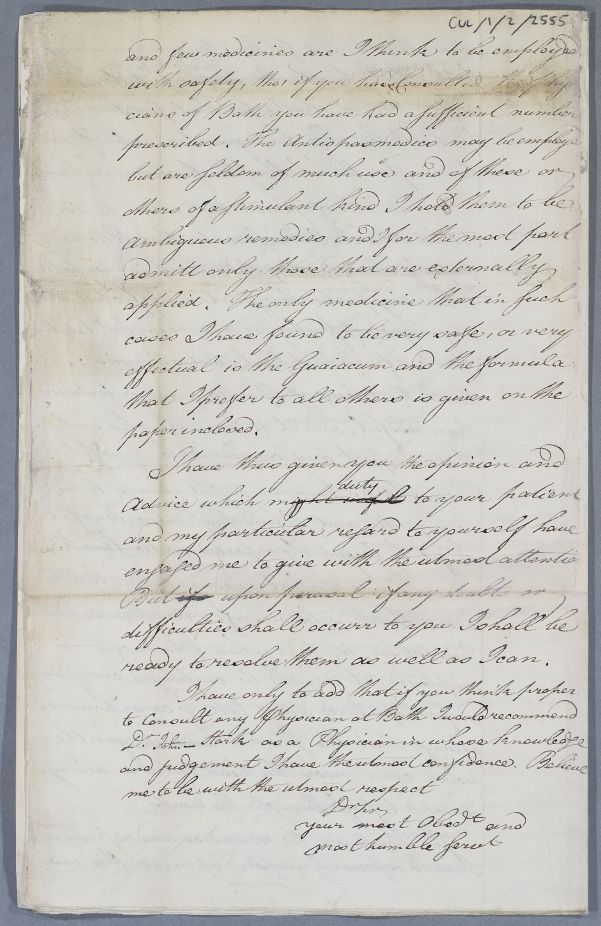 CUL/1/2/2555
and few medicines are I think to be employed
with safety, that if you have Consulted the Phy
cians of Bath you have had a sufficient number
prescribed. The Antispasmodics may be employ
but are seldom of much use and of these or
others of a stimulant kind I hold them to be
ambiguous remedies and I for the most part
admitt only those that are externally
applied. The only medicine that in such
cases I have found to be very safe, or very
effectual is the Guaiacum and the formula
that I prefer to all others is given on the
paper inclosed.
I have thus given you the opinion and
duty
Advice which to your patient
and my particular regard to yourself have
engaged me to give with the utmost attentio
But if upon perusal if any doubts or
difficulties shall occurr to you I shall be
ready to resolve them as well as I can.
I have only to add that if you think proper
to Consult any Physician at Bath I would recommend
Dr. John Stark as a Physician in whose knowledge
and judgement I have the utmost confidence. Believe
me to be with the utmost respect
Dr Sir
your most Obedt and
most humble servt